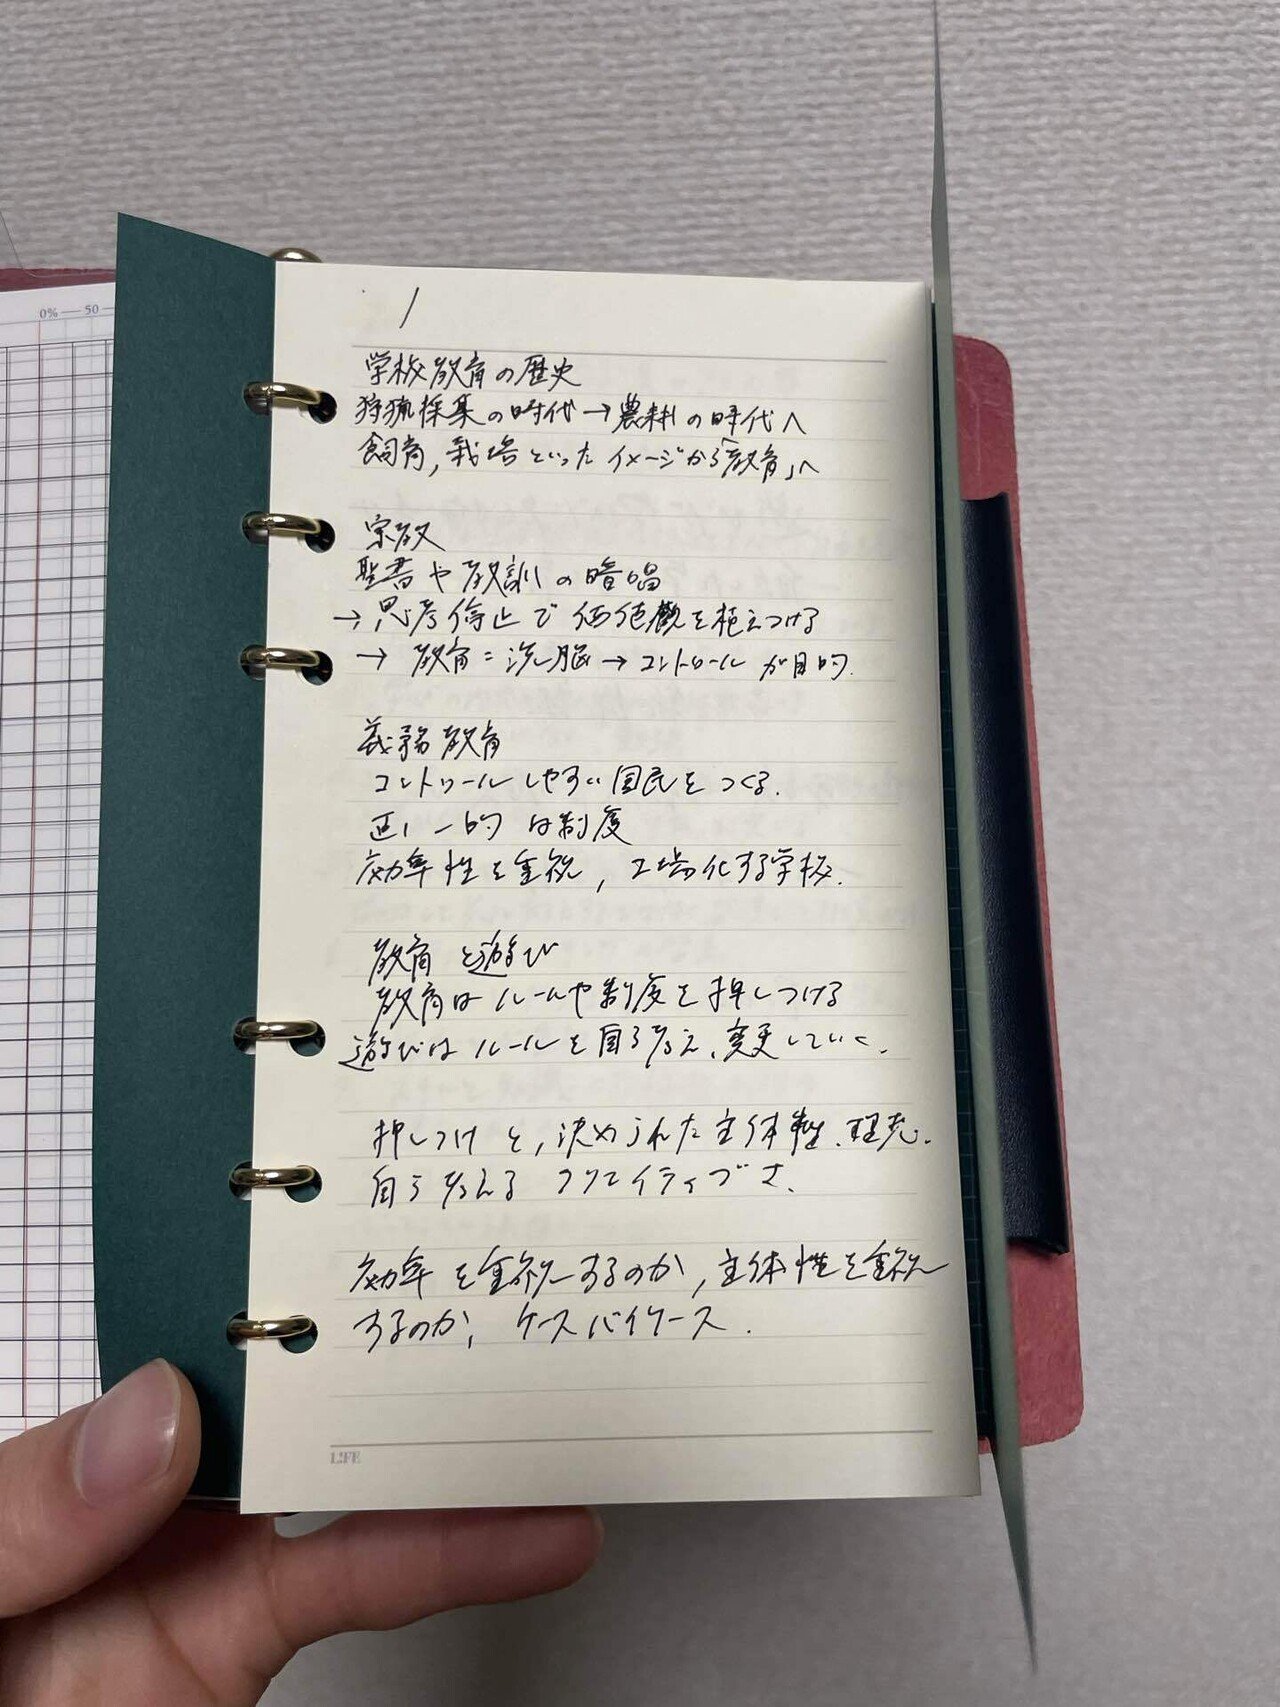 0% 50
1
学校教育の歴史
狩猟採集の時代→農耕の時代へ
飼育,栽培といったイメージから「教育」へ
宗教
聖書や教訓の暗唱
→思考停止で価値観を植えつける
→教育=洗脳→コントロールが目的.
義務教育
コントロールしやすい国民をつくる.
画一的な制度
効率性を重視,工場化する学校.
教育と遊び
教育はルールや制度を押しつける
遊びはルールを自ら考え、変更していく.
押しつけと,決められた主体性.
自ら考えるクリエイティブさ.
効率を重視するのか,主体性を重視
するのか,ケースバイケース.
LIFE